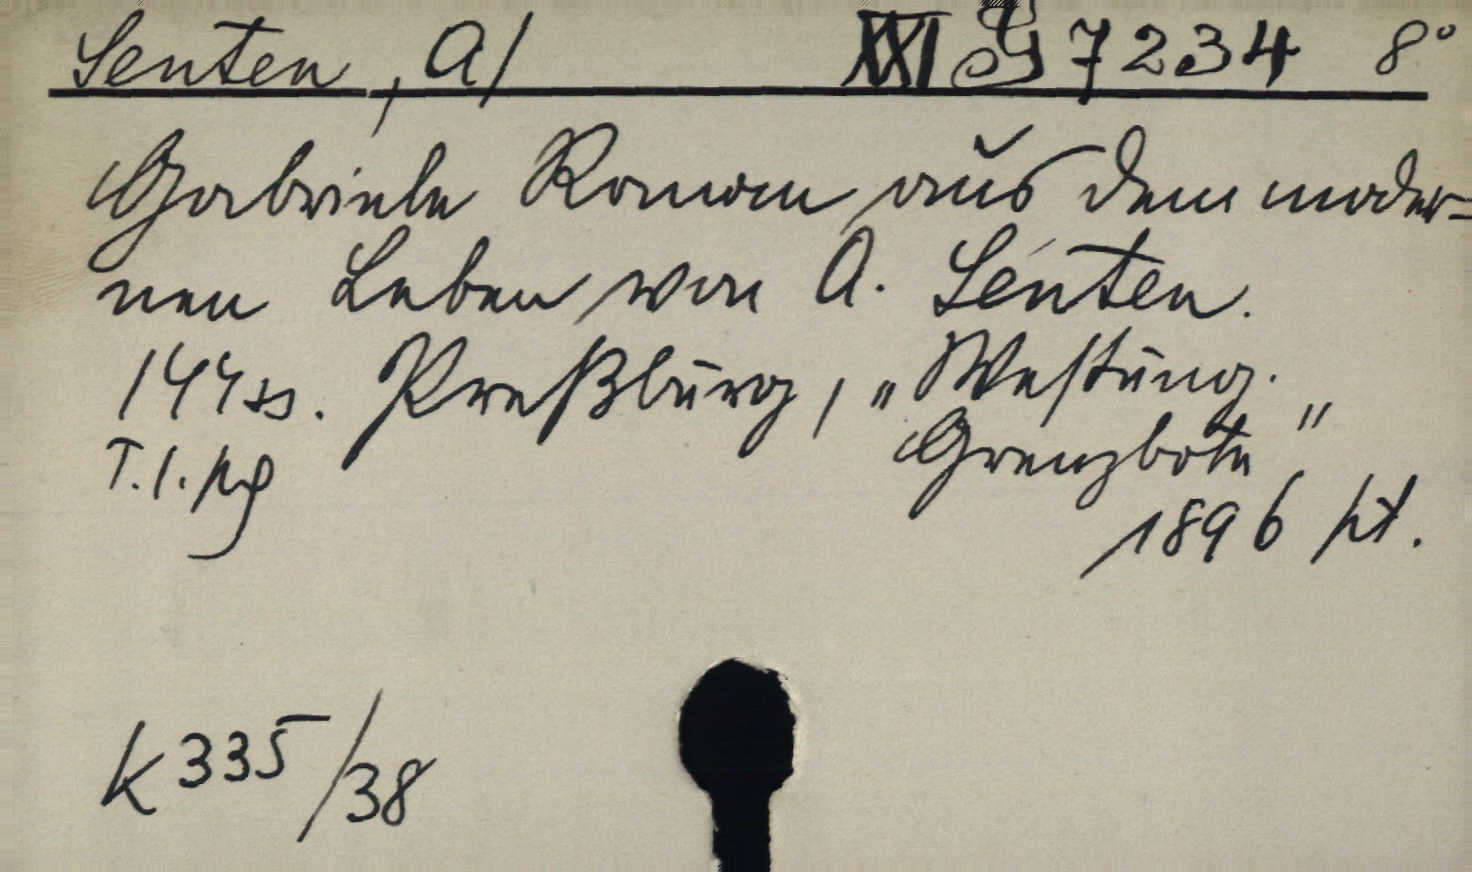 Senten, A/ XXI G 7234 8°
Gabriele Roman aus dem moder=
nen Leben von A. Senten.
144 ss. Preßburg, „Westung.
T.1. Grenzbote"
1896
K 335/38